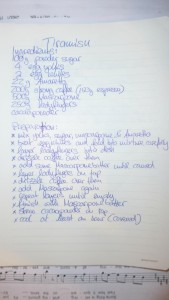 Tiramisu
Ingredients:
100g powder sugar
4 egg yolks
2 egg whites
22 g Amaretto
200g strong coffee (very espresso)
500g Mascarpone
250g ladyfingers
cocoapowder
Preparation:
* mix yolks, sugar, mascarpone & Amaretto
* beat eggwhites and fold into mixture carefully
* layer ladyfingers into dish
* drizzle coffee over them
* add some Mascarponebutter until covered
* layer ladyfingers on top
* drizzle coffee over them
* add Mascarpone again
* repeat layers until empty
* finish with Mascarponebutter
* sieve cocoapowder on top
* cool at least an hour (covered)